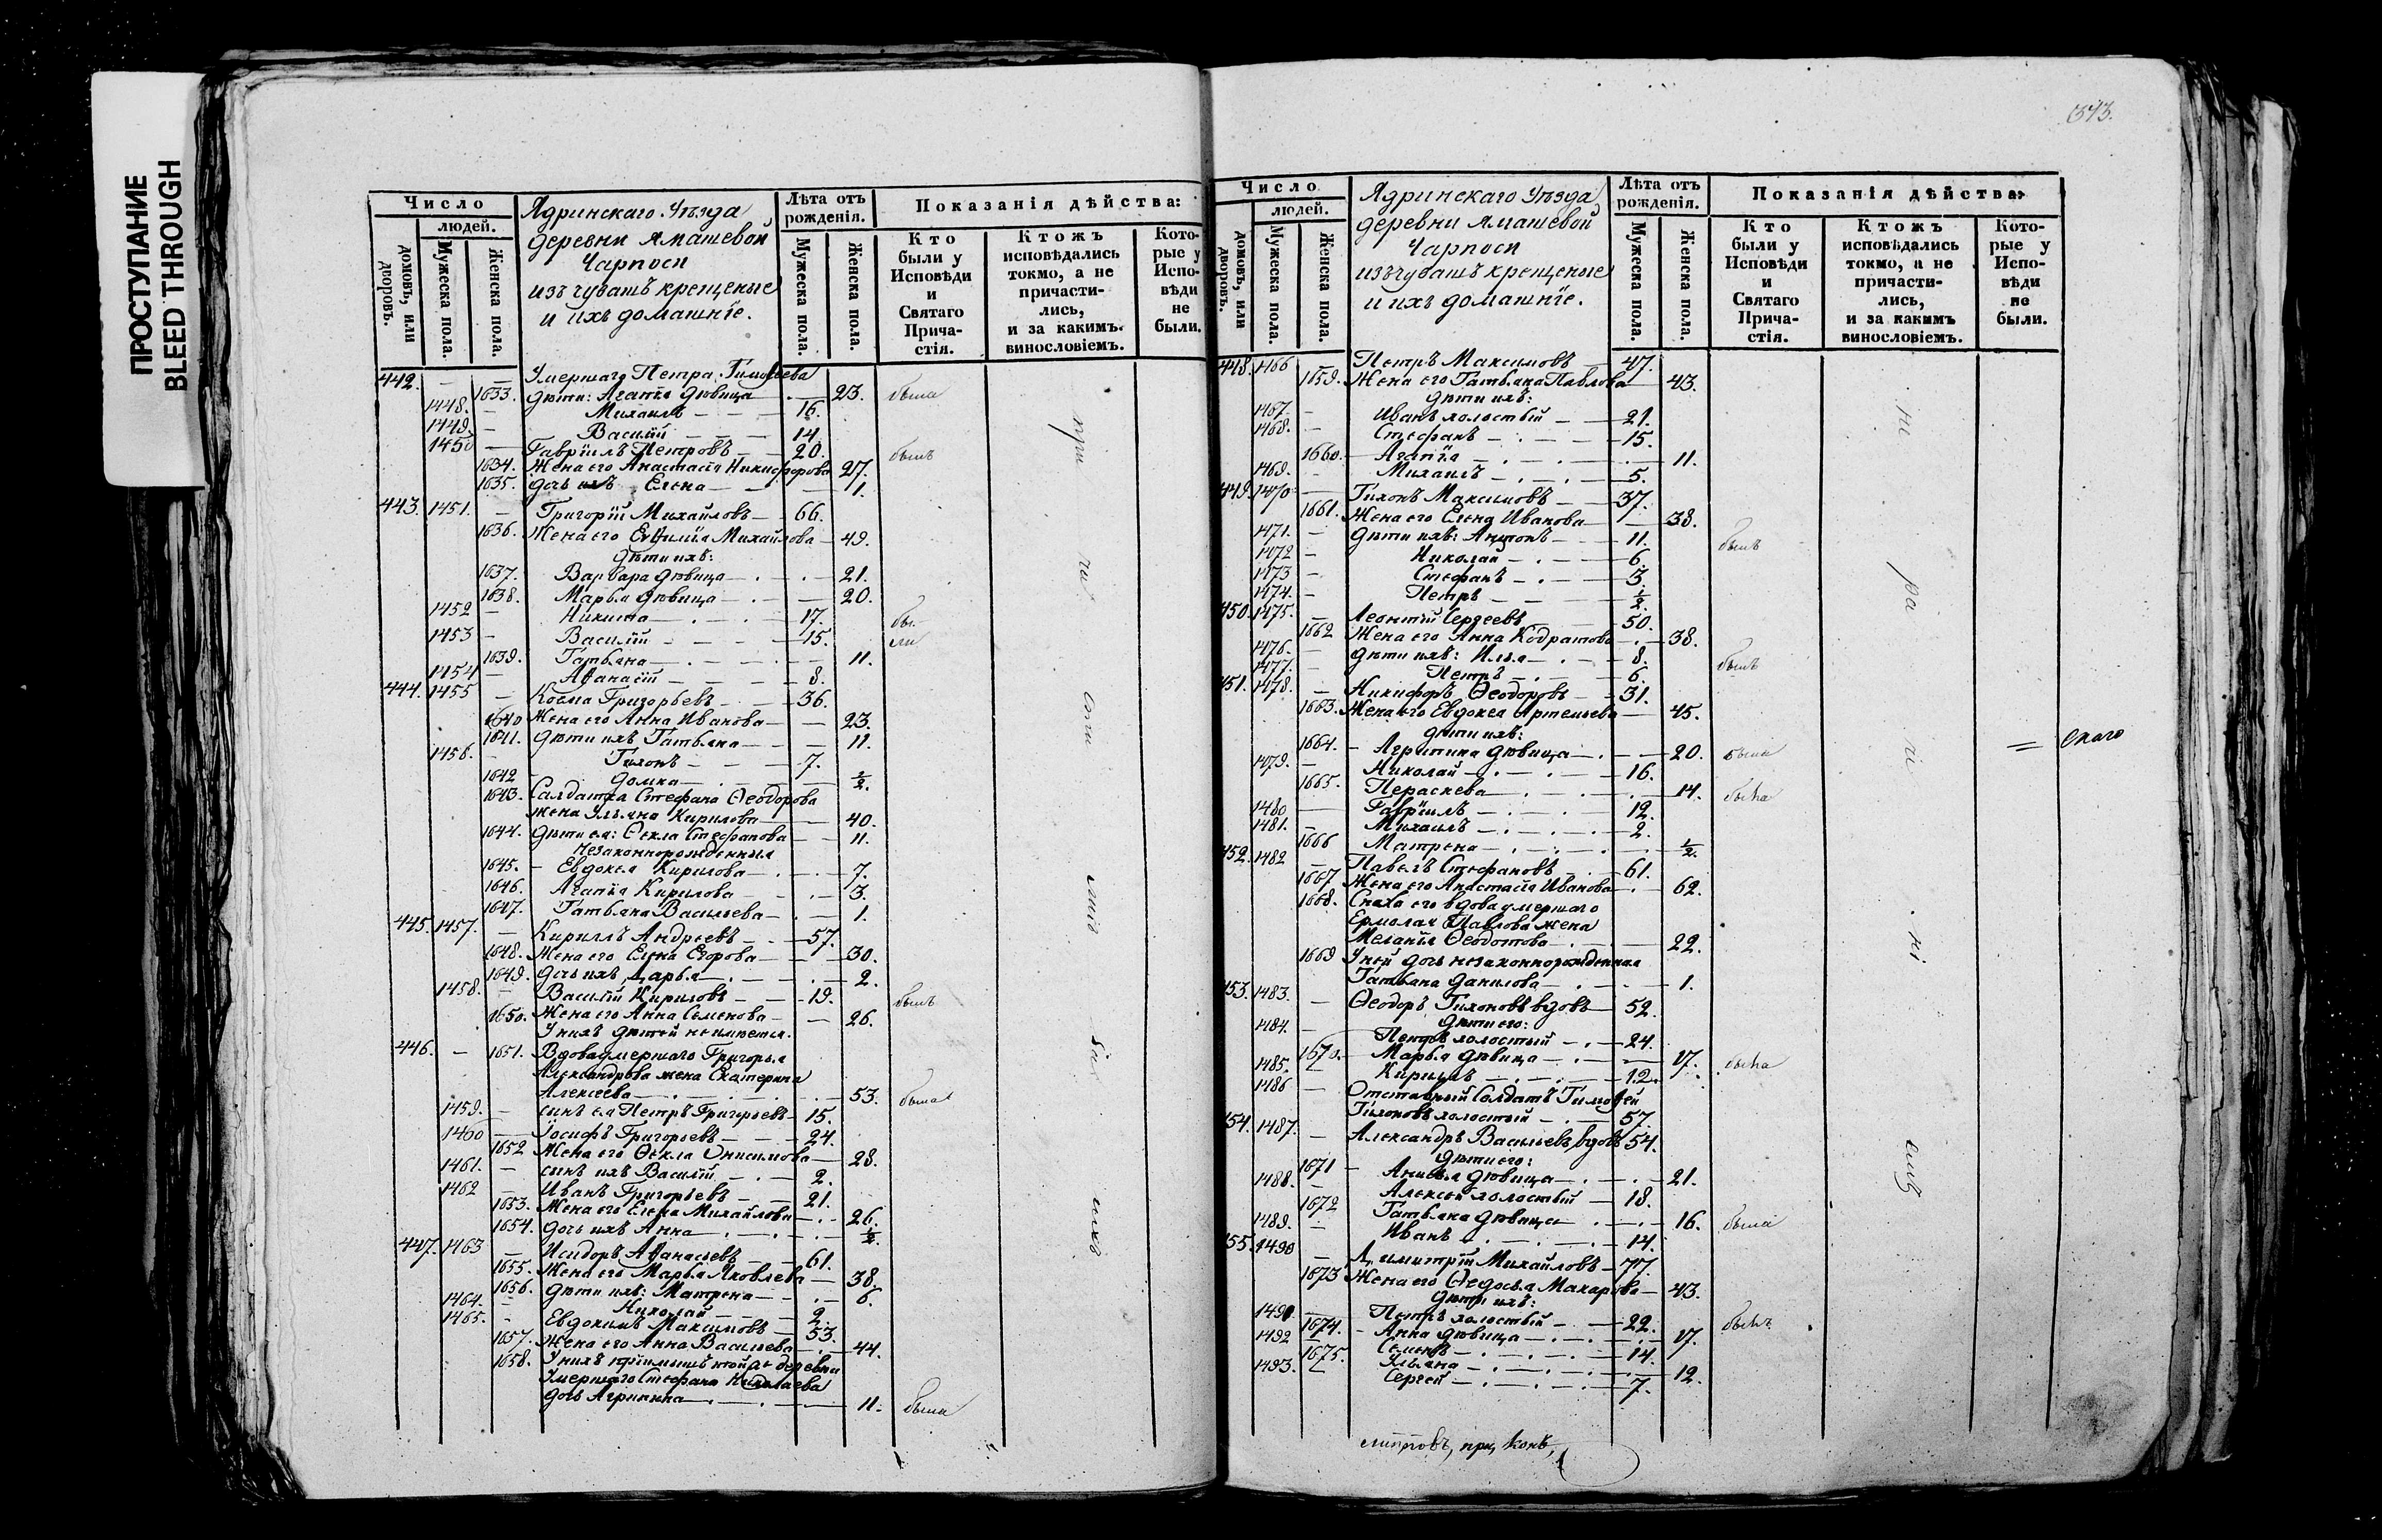 ПРОСТУПАНИЕ
BLEED THROUGH
Число
людей.
домовъ, или дворовъ.
Мужеска пола.
Женска пола.
Ядринскаго Уѣзда
деревни Ямашевой
Чарпоси
изъ чувашъ крещеные
и ихъ домашніе.
Лѣта отъ рожденія.
Мужеска пола.
Женска пола.
Показанія дѣйства:
Кто были у Исповѣди и Святаго Причастія.
Ктожъ исповѣдались токмо, а не причастились, и за какимъ винословіемъ.
Которые у Исповѣди не были.
442. — — Умершаго Петра Тимоѳеева
1633. дѣти: Агаѳія дѣвица — 23. была
1448. — Михаилъ — 16.
1449. — Василій — 14.
1450 — Гавріилъ Петровъ — 20. былъ
1634. Жена его Анастасія Никифорова 27.
1635. дочь ихъ Елена — 1.
443. 1451. — Григорій Михайловъ — 66.
1636. Жена его Евѳимія Михайлова — 49.
дѣти ихъ:
1637. Варвара дѣвица — 21.
1638. Марья дѣвица — 20.
1452 — Никита — 17. бы
1453 — Василій — 15. ли
1639. Татьяна — 11.
1454 — Аѳанасій — 8.
444. 1455 — Косма Григорьевъ — 36.
1640 Жена его Анна Иванова — 23.
1641. дѣти ихъ Татьяна — 11.
1456. — Тихонъ — 7.
1642 — Домна — ½.
1643. Салдатка Стефана Ѳеодорова
жена Ульяна Кирилова — 40.
1644. дѣти ея: Ѳекла Стефанова — 11.
незаконнорожденныя
1645. — Евдокея Кирилова — 7.
1646. Агаѳія Кирилова — 3.
1647. Татьяна Васильева — 1.
445. 1457. — Кириллъ Андреевъ — 57.
1648. Жена его Елена Егорова — 30.
1649. дочь ихъ Дарья — 2.
1458. — Василій Кириловъ — 19. былъ
1650. Жена его Анна Семенова — 26.
У нихъ дѣтей неимѣется.
446. — 1651. Вдова умершаго Григорья
Александрова жена Екатерина
Алексеева — 53. была
1459. — сынъ ея Петръ Григорьевъ — 15.
1460 — Іосифъ Григорьевъ — 24.
1652 Жена его Ѳекла Онисимова — 28.
1461. — сынъ ихъ Василій — 2.
1462 — Иванъ Григорьевъ — 21.
1653. Жена его Елена Михайлова — 26.
1654. дочь ихъ Анна — ½.
447. 1463 — Исидоръ Аѳанасьевъ — 61.
1655. Жена его Марья Яковлева — 38.
1656. дѣти ихъ: Матрена — 6.
1464. — Николай — 2.
1465. — Евдокимъ Максимовъ — 53.
1657. Жена его Анна Васильева — 44.
1658. У нихъ деревни
Умершаго Стефана Николаева
дочь Агрипина — 11. была
343.
Число
людей.
домовъ, или дворовъ.
Мужеска пола.
Женска пола.
Ядринскаго Уѣзда
деревни Ямашевой
Чарпоси
изъ чувашъ крещеные
и ихъ домашніе.
Лѣта отъ рожденія.
Мужеска пола.
Женска пола.
Показанія дѣйства:
Кто были у Исповѣди и Святаго Причастія.
Ктожъ исповѣдались токмо, а не причастились, и за какимъ винословіемъ.
Которые у Исповѣди не были.
448. 1466 — Петръ Максимовъ — 47.
1659. Жена его Татьяна Павлова — 43.
дѣти ихъ:
1467. — Иванъ холостый — 21.
1468. — Стефанъ — 15.
1660. Агаѳія — 11.
1469. — Михаилъ — 5.
449. 1470 — Тихонъ Максимовъ — 37.
1661. Жена его Елена Иванова — 38.
1471. — дѣти ихъ: Антонъ — 11. былъ
1472 — Николай — 6.
1473 — Стефанъ — 3.
1474. — Петръ — ½.
450. 1475. — Леонтій Сергеевъ — 50.
1662 Жена его Анна Кодратова — 38.
1476. — дѣти ихъ: Илья — 8. былъ
1477. — Петръ — 6.
451. 1478. — Никифоръ Ѳеодоровъ — 31.
1663. Жена его Евдокея Артемьева — 45.
дѣти ихъ:
1664. — Агрипина дѣвица — 20. была
1479. — Николай — 16.
1665. Параскева — 14. была
1480 — Гавріилъ — 12.
1481. — Михаилъ — 2.
1666 Матрена — ½.
452. 1482 — Павелъ Стефановъ — 61.
1667 Жена его Анастасія Иванова — 62.
1668. Сноха его вдова умершаго
Ермолая Павлова жена
Меланія Ѳеодотова — 22.
1669 У ней дочь незаконнорожденная
Татьяна Данилова — 1.
453. 1483. — Ѳеодоръ Тихоновъ вдовъ — 52.
дѣти его:
1484. — Петръ холостый — 24.
1670. Марья дѣвица — 17. была
1485. — Кириллъ — 12.
1486 — Отставный Солдатъ Тимоѳей
Тихоновъ холостый — 57.
454. 1487. — Александръ Васильевъ вдовъ 54.
дѣти его:
1671 — Анисья дѣвица — 21.
1488. — Алексей холостый — 18.
1672 Татьяна дѣвица — 16. была
1489. — Иванъ — 14.
455. 1490 — Димитрій Михайловъ — 77.
1673 Жена его Ѳедосья Макарова — 43.
дѣти ихъ:
1491 — Петръ холостый — 22. былъ
1674. — Анна дѣвица — 17.
1492 — Семенъ — 14.
1675. Ульяна — 12.
1493. — Сергей — 7.
= скаго